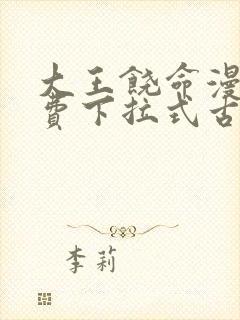 大王饶命漫
费下拉式古
李莉